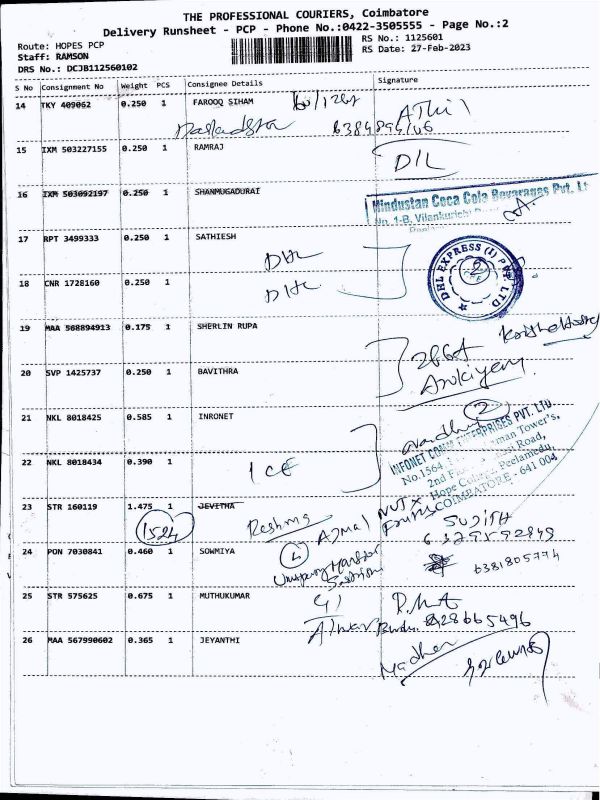 THE PROFESSIONAL COURIERS, Coimbatore
Delivery Runsheet - PCP - Phone No.:0422-3505555 - Page No.:2
Route: HOPES PCP
Staff: RAMSON
DRS No.: DCJB112560102
RS No.: 1125601
RS Date: 27-Feb-2023
S No Consignment No Weight PCS Consignee Details Signature
14 TKY 409062 0.250 1 FAROOQ SIHAM
15 IXM 503227155 0.250 1 RAMRAJ
DIL
16 IXM 503092197 0.250 1 SHANMUGADURAI
Hindustan Coca Cola Bevarages Pvt. Lt
No. 1-B, Vilankurichi
17 RPT 3499333 0.250 1 SATHIESH
DHL
DHL EXPRESS (I) PVT. LTD
2
18 CNR 1728160 0.250 1
DHL
19 MAA 568894913 0.175 1 SHERLIN RUPA
20 SVP 1425737 0.250 1 BAVITHRA
21 NKL 8018425 0.585 1 INRONET
2
INFONET COMM ENTERPRISES PVT. LTD.
No.1564
Tower's,
2nd
Road,
Hope College, Peelamedu,
COIMBATORE - 641 004
22 NKL 8018434 0.390 1
ICE
23 STR 160119 1.475 1 JEVITHA
1524
Reshma
Ajmal
SUJITH
24 PON 7030841 0.460 1 SOWMIYA
4
6381805774
25 STR 575625 0.675 1 MUTHUKUMAR
26 MAA 567990602 0.365 1 JEYANTHI